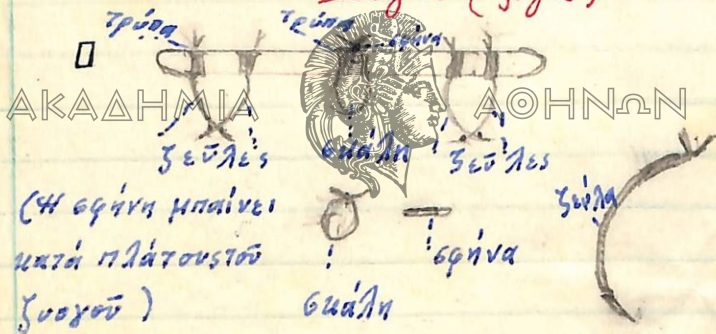 τρύπα τρύπα σφήνα
ΑΚΑΔΗΜΙΑ ΑΘΗΝΩΝ
ζεῦλες σκάλη ζεῦλες
ζεύλα
(Ἡ σφήνη μπαίνει
κατά πλάτους τοῦ
ζυογοῦ)
σφήνα
σκάλη